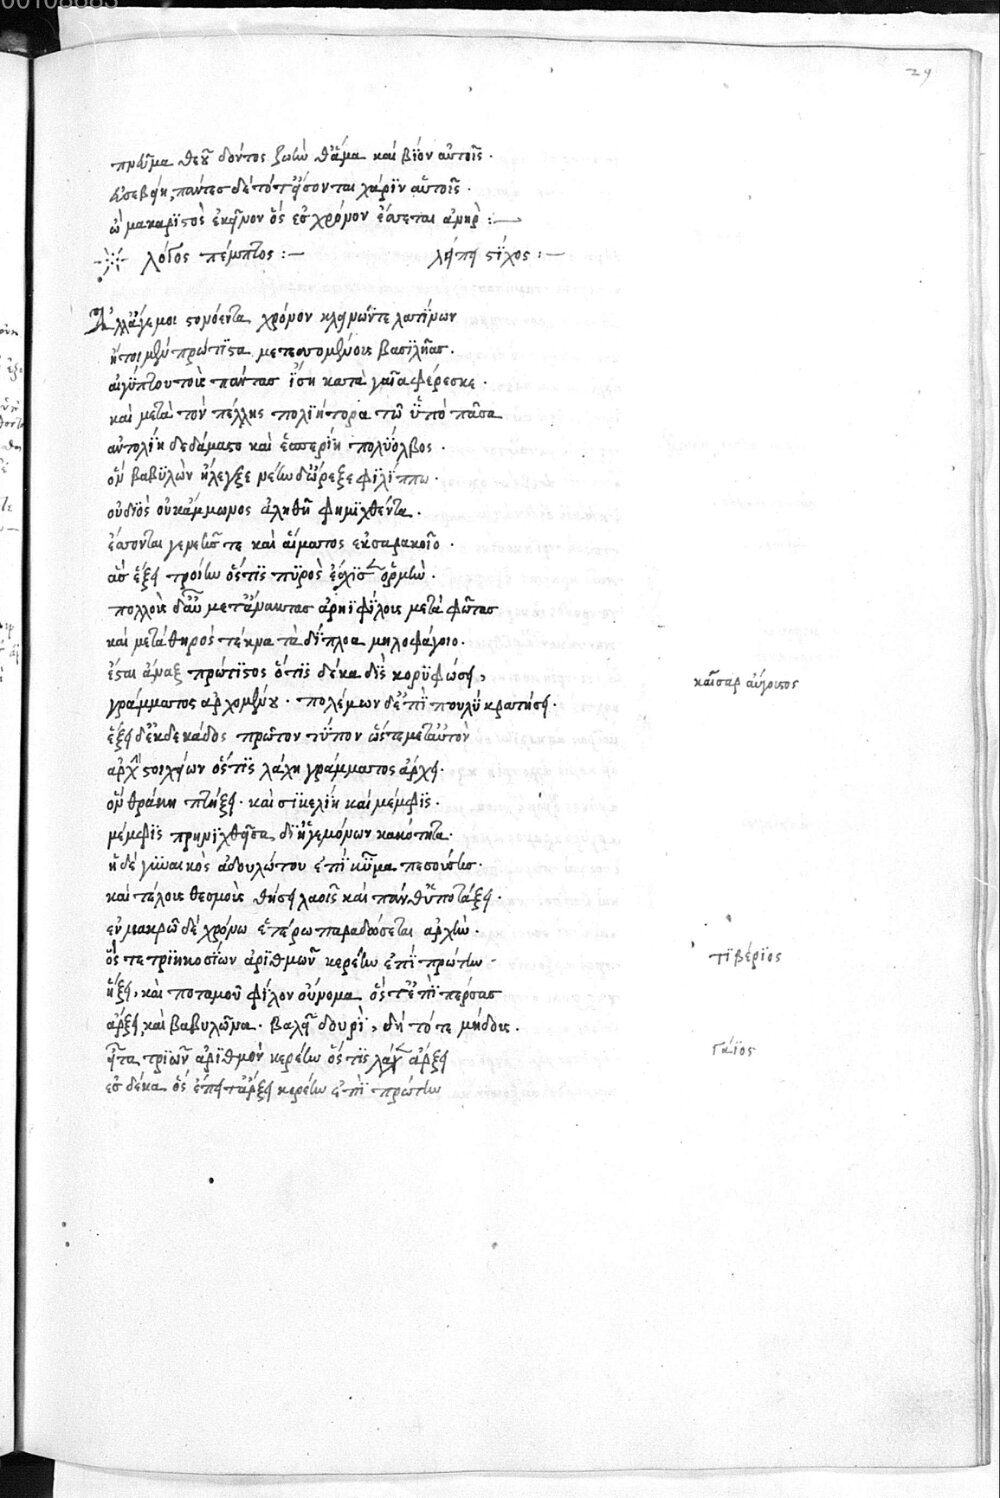 00108683
29
πνεῦμα θεοῦ δόντος ζωὴν θἅμα καὶ βίον αὐτοῖς.
εὐσεβέη, πάντες δὲ τότ' ὄψονται χάρϊν αὐτοῖς.
ὦ μακαρϊστὸς ἐκεῖνον ὃς ἐσ χρόνον ἔσσεται ἀνὴρ :—
λόγος πέμπτος :— λείπει στίχος :—
Ἀλλ' ἄγε μοι στονόεντα χρόνον κλύε μῶντε λατίνων
ἤτοι μὲν πρώτϊστα μετ' ὀλομένους βασιλῆας.
αἰγύπτου τοὺς πάντας ἴση κατὰ γαῖα φέρεσκε.
καὶ μετὰ τὸν πέλλης πολϊήτορα τῶ ὕπο πᾶσα
ἀντολίη δεδάμαστο καὶ ἑσπερίη πολύολβος.
ὃν βαβϋλὼν ἤλεγξε νέκυν δ' ὤρεξε φϊλίππω.
οὐ διὸς οὐκ ἄμμωνος ἀληθῆ φημϊχθέντα.
ἔσονται γενεῆς τε καὶ αἵματος ἐκ σαρακοῖο.
ἀσ ἕξει τροίην ὅστϊς πϋρὸς ἔσχϊσεν ὁρμὴν.
πολλοὺς δ' αὖ μετ' ἄνακτας ἀρηϊφίλους μετὰ φῶτας
καὶ μετὰ θηρὸς τέκνα τὰ δίπλοα μηλοφάγοιο.
ἔσται ἄναξ πρώτϊστος ὅτϊς δέκα δὶς κορϋφώσει,
γράμματος ἀρχομένου. πολέμων δ' ἐπϊ πουλϋ κρατήσει.
ἕξει δ' ἐκ δεκάδος πρῶτον τύπον ὥστε μετ' αὐτὸν
ἄρχειν στοιχείων ὅστϊς λάχη γράμματος ἀρχή.
ὃν θράκη πτήξει. καὶ σϊκελίη καὶ μέμφϊς.
μέμφϊς πρηνϊχθεῖσα, δϊ' ἡγεμόνων κακότητα.
ἠδὲ γυναικὸς ἀδουλώτου ἐπϊ κῦμα πεσούσης.
καὶ τέλους θεσμοὺς θήσει λαοῖς καὶ πάνθ' ὑποτάξει.
ἐν μακρῶ δὲ χρόνω ἑτέρω παραδώσεται ἀρχὴν.
ὃς τε τρϊηκοσΐων ἀρϊθμῶν κεραίην ἐπϊ πρώτην
ἕξει, καὶ ποταμοῦ φίλον οὔνομα ὅς τ' ἐπϊ πέρσας
ἄρξει, καὶ βαβυλῶνα. βαλεῖ δ' δουρὶ, δὴ τότε μήδοις.
εἶτα τρϊῶν ἀρϊθμὸν κεραίην ὅστϊς λάχεν ἄρξει
ἐσ δέκα ὃς ἐπεὶ τ' ἄρξει κεραίην ἐπὶ πρώτην
καῖσαρ αὔγουστος
τϊβέρϊος
γάϊος